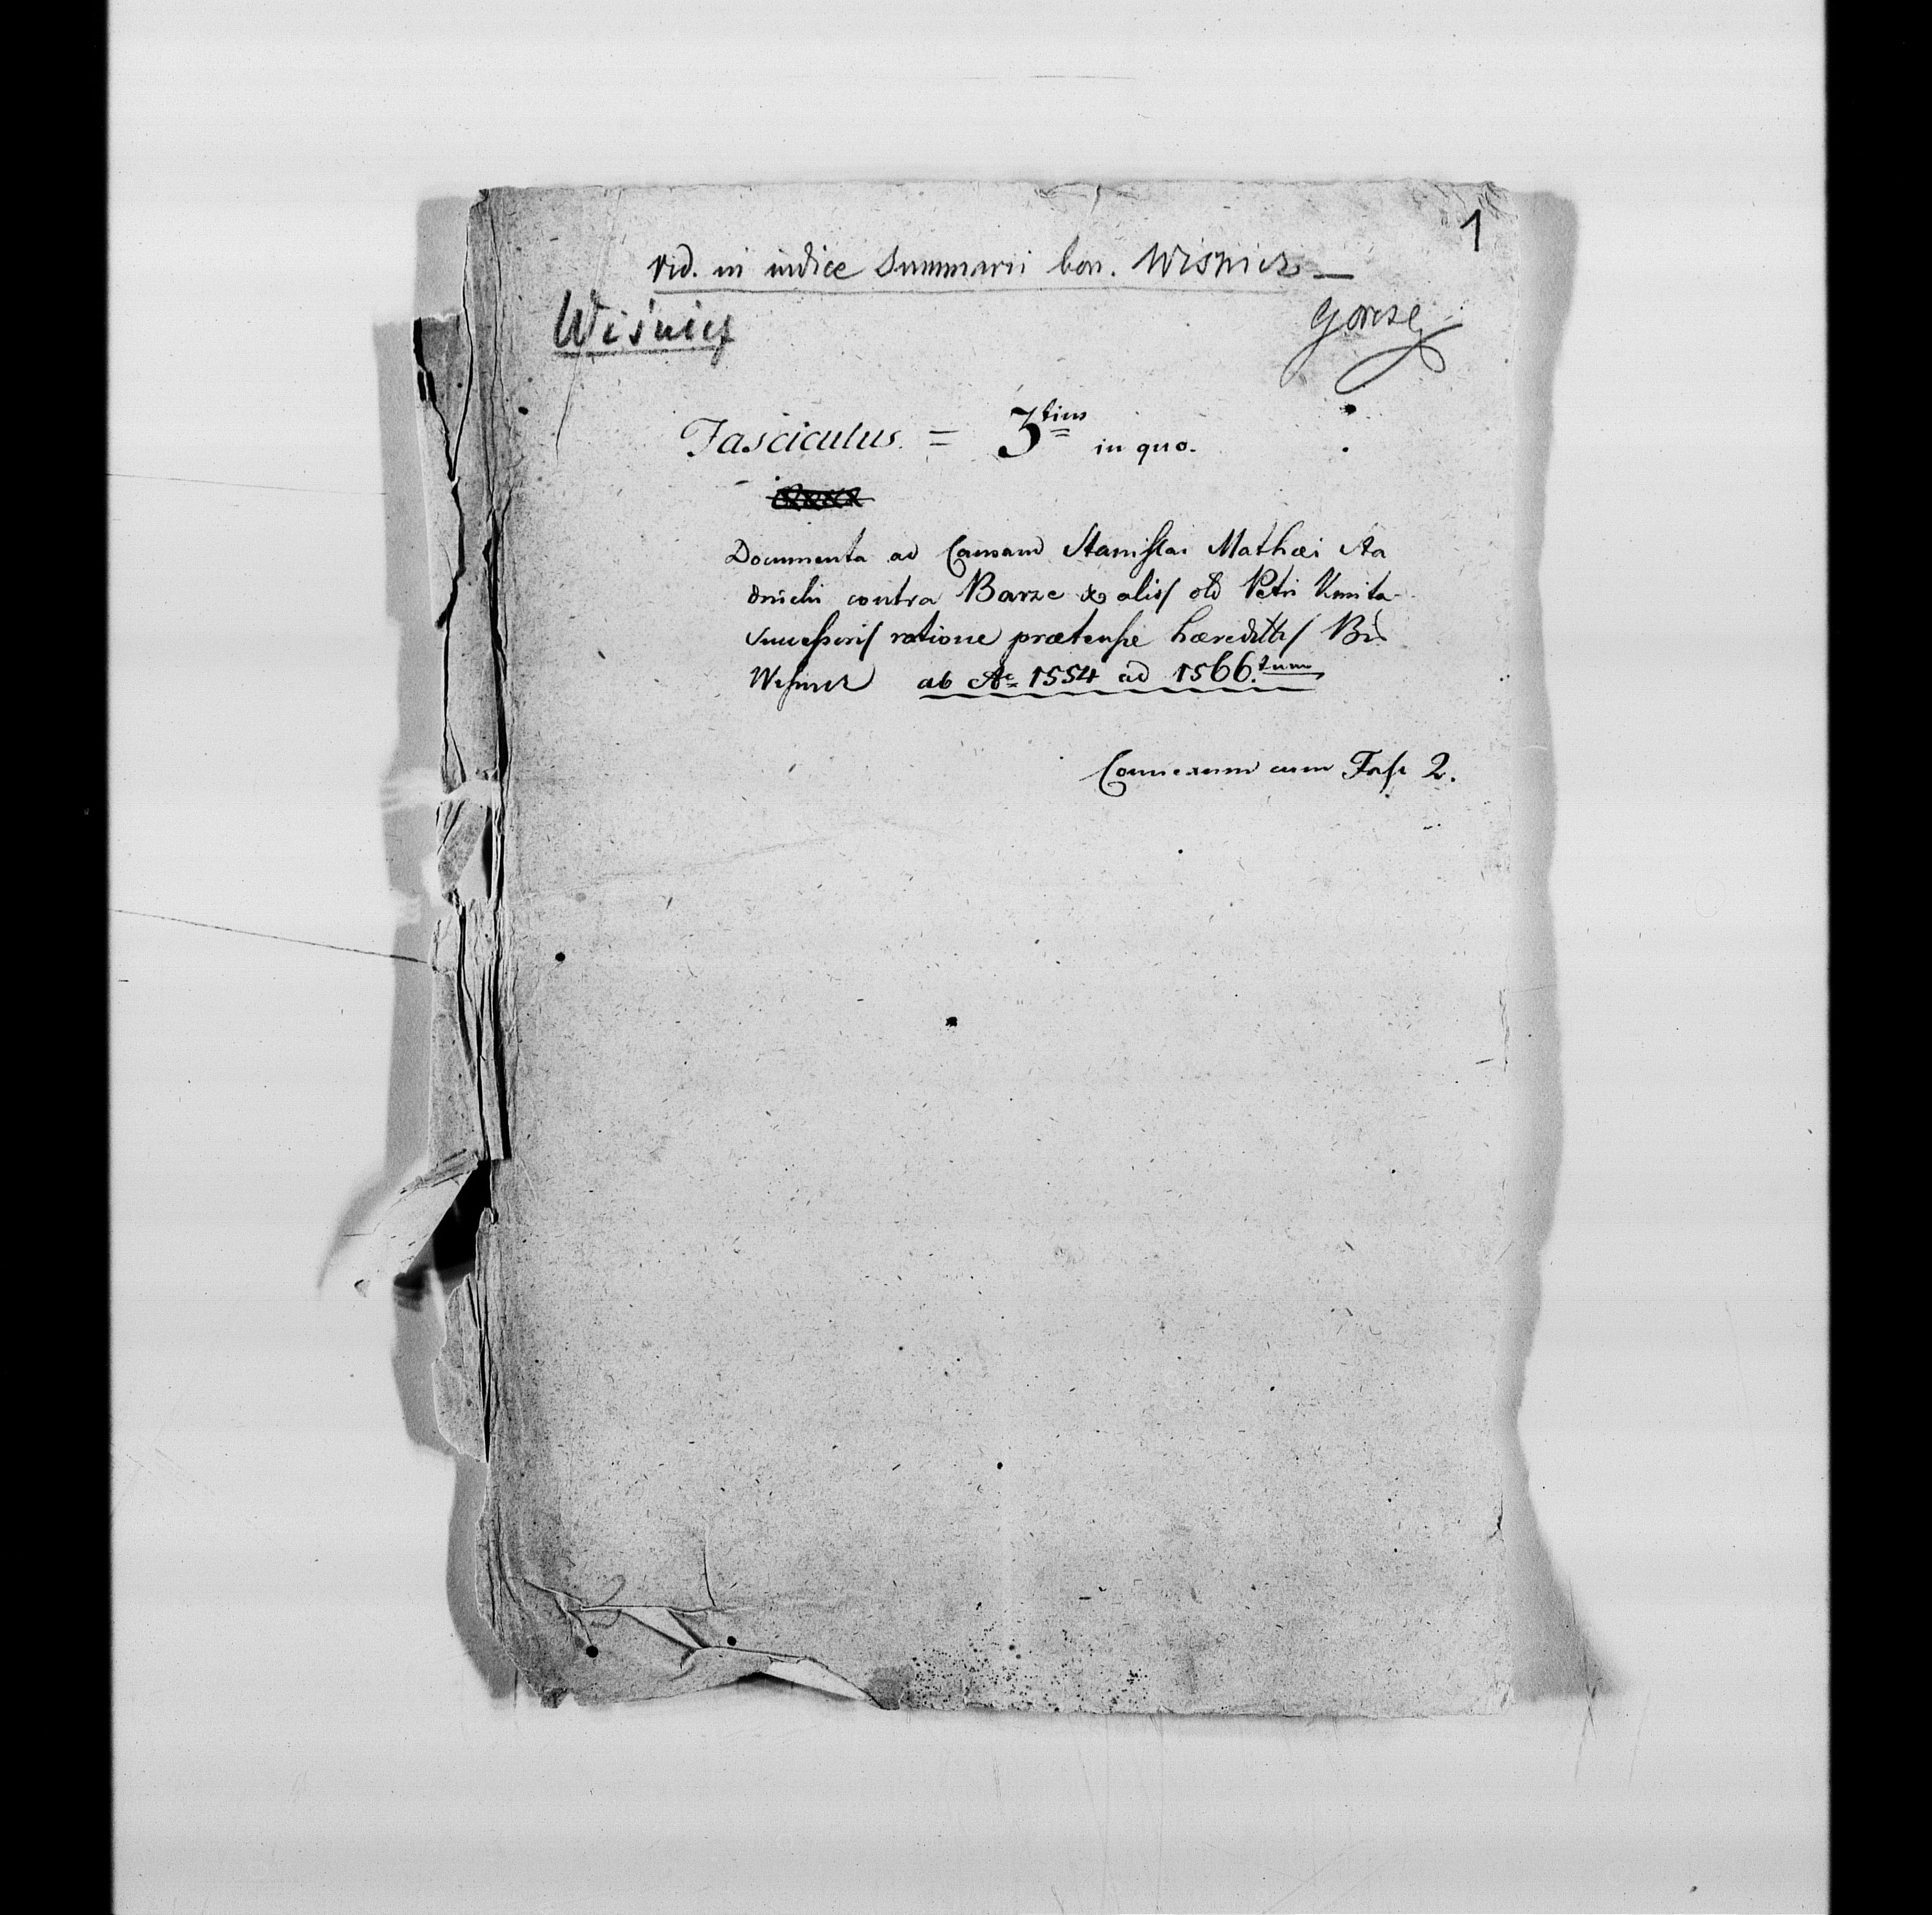 1
vid. in indice Summarii bon. Wisnicz —
Wiśnicz
Fasciculus = 3tius in quo.
Documenta ad Causam Stanislai Mathæi Sta
dnicki contra Barze & alios olim Petri Kmita
Successores ratione prætensæ hæreditatis Bonorum
Wisnicz ab Ao 1554 ad 1566.tum
Connexum cum Fasc 2.